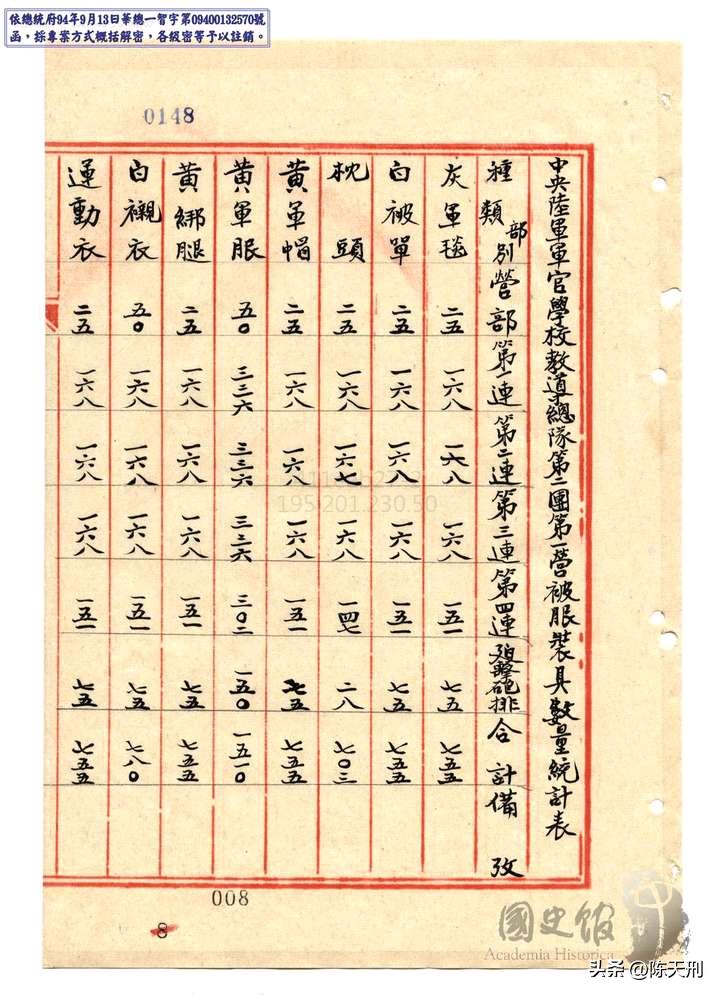 依總統府94年9月13日華總一智字第09400132570號
函，採專案方式概括解密，各級密等予以註銷。
0148
中央陸軍軍官學校教導總隊第二團第一營被服裝具數量統計表
種類 部別 營部 第一連 第二連 第三連 第四連 迫擊砲排 合計 備攷
灰軍毯 二五 一六八 一六八 一六八 一五一 七五 七五五
白被單 二五 一六八 一六八 一六八 一五一 七五 七五五
枕頭 二五 一六八 一六七 一六八 一四七 二八 七〇三
黃軍帽 二五 一六八 一六八 一六八 一五一 七五 七五五
黃軍服 五〇 三三六 三三六 三三六 三〇二 一五〇 一五一〇
黃綁腿 二五 一六八 一六八 一六八 一五一 七五 七五五
白襯衣 五〇 一六八 一六八 一六八 一五一 七五 七八〇
運動衣 二五 一六八 一六八 一六八 一五一 七五 七五五
195.201.230.50
008
8
國史館
Academia Historica
头条 @陈天刑